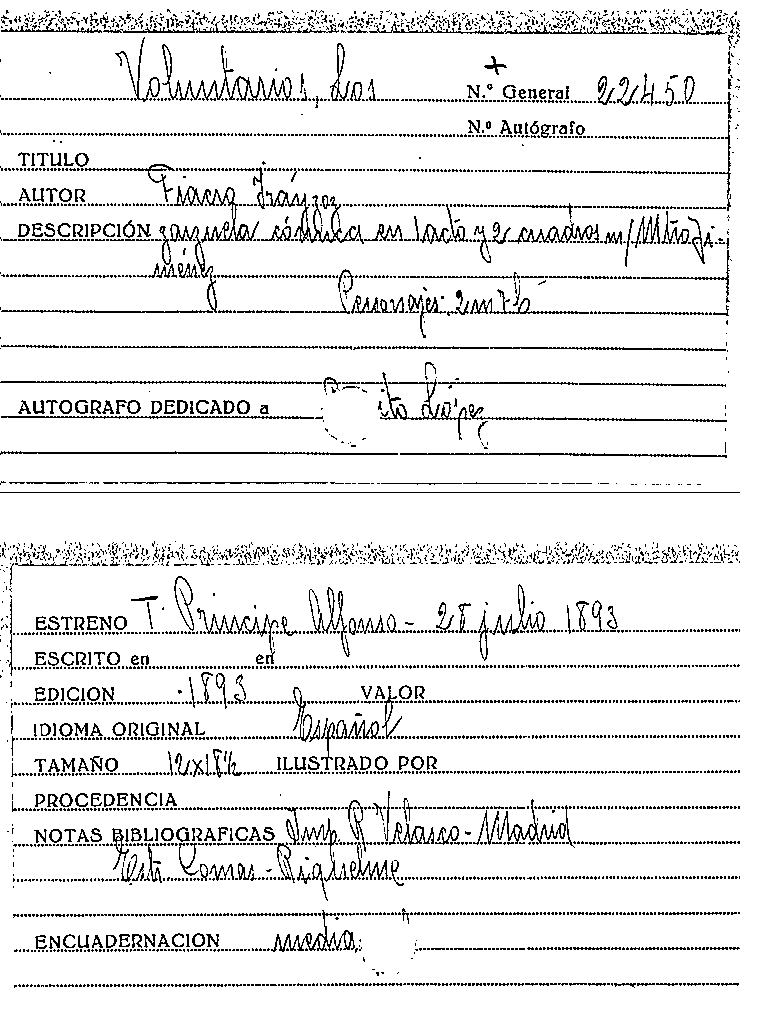 Voluntarios, Los
+
N.º General 22450
N.º Autógrafo
TITULO
AUTOR Fiacro Iráyzoz
DESCRIPCIÓN zarzuela cómica en 1 acto y 2 cuadros m/ Mtro Ji-
ménez
Personajes: 2 m 7 h
AUTOGRAFO DEDICADO a ito López
ESTRENO T. Principe Alfonso - 28 julio 1893
ESCRITO en en
EDICION 1893 VALOR
IDIOMA ORIGINAL Español
TAMAÑO 12x18½ ILUSTRADO POR
PROCEDENCIA
NOTAS BIBLIOGRAFICAS Imp R Velasco - Madrid
Estr Comas -
ENCUADERNACION media